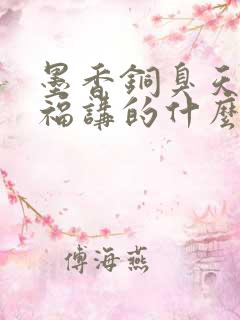 墨香銅臭天
福講的什麼
傅海燕